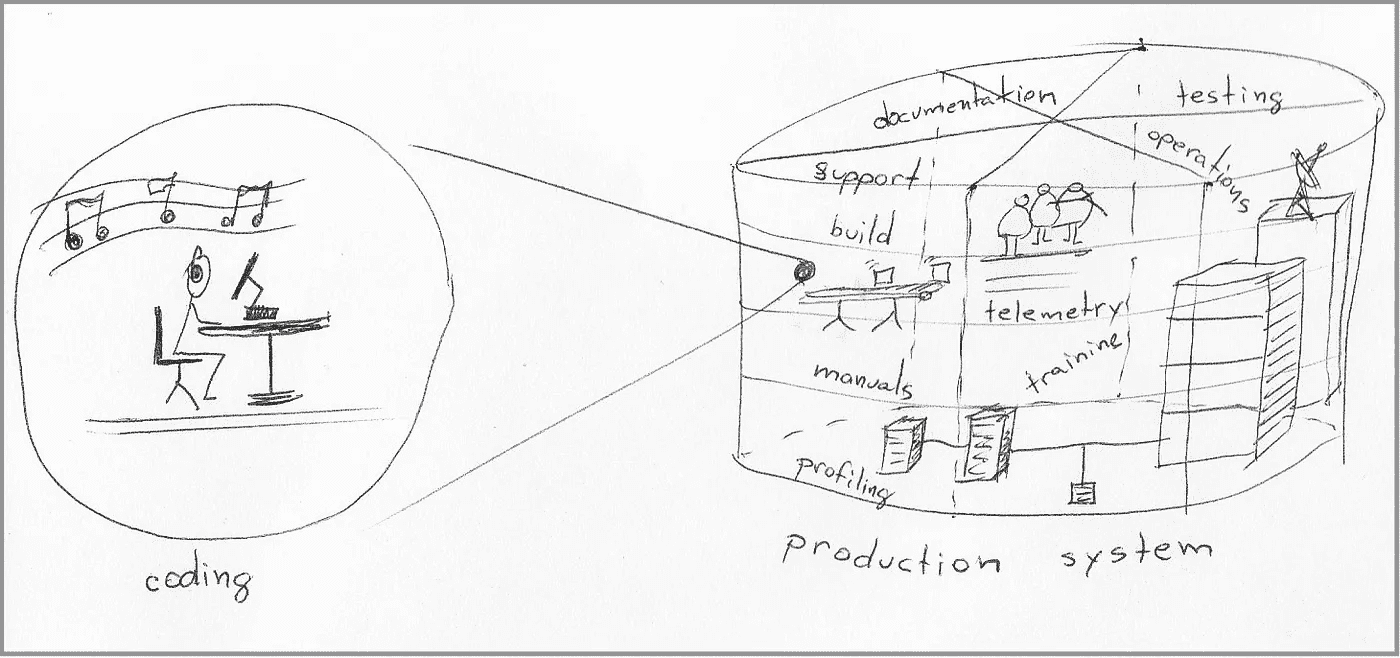 documentation
testing
operations
support
build
telemetry
trainine
manuals
profiling
coding
production system